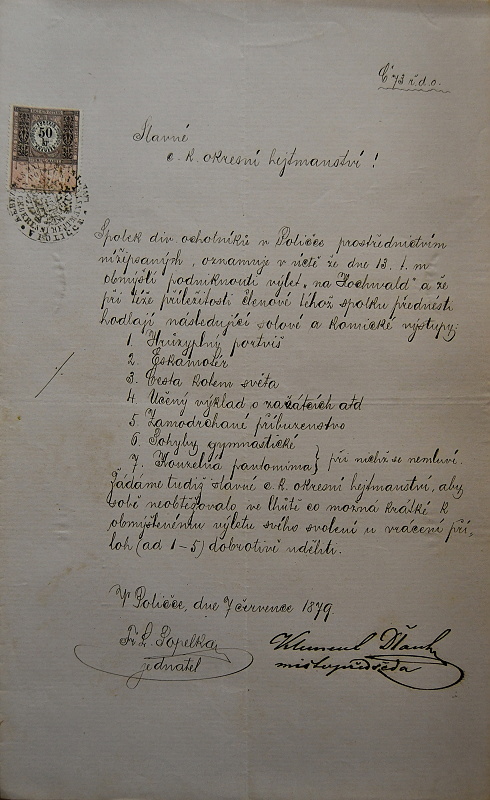 Č 73 ř.d.o.
50
Slavné
c. k. okresní hejtmanství!
Spolek div. ochotníků v Poličce prostřednictvím
nížepsaných, oznamuje v úctě že dne 13. t. m
obmýšlí podniknouti výlet „na Hochwald" a že
při téže příležitosti členové téhož spolku přednésti
hodlají následující solové a komické výstupy:
1. Hrůzyplný portviš
2. Eskamotér
3. Cesta kolem světa
4. Učený výklad o začátcích atd
5. Zamodrchané příbuzenstvo
6. Pohyby gymnastické
7. Kouzelná pantomima } při nichž se nemluví.
Žádáme tudíž slavné c. k. okresní hejtmanství, aby
sobě neobtěžovalo ve lhůtě co možná krátké k
obmýšlenému výletu svého svolení u vrácení pří-
loh (ad 1-5) dobrotivě uděliti.
V Poličce, dne 7 července 1879.
Fr. L. Popelka
jednatel
Klement
místopředseda